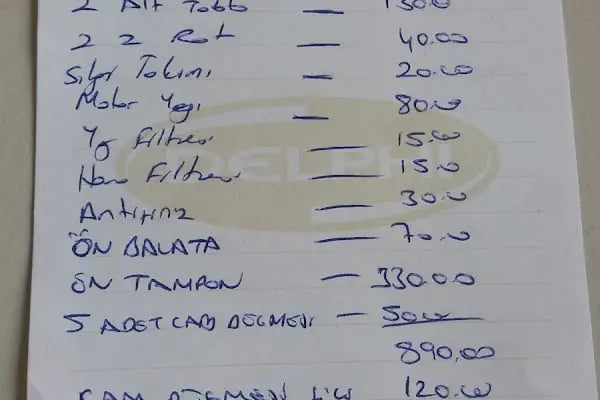 2 Alt Tabb — 130.0
2 Z Rot — 40.00
Silgi Takımı — 20.00
Motor Yağı — 80.00
Yağ Filtresi — 15.00
Hava Filtresi — 15.0
Antifiriz — 30.00
ÖN BALATA — 70.00
ÖN TAMPON — 330.00
5 ADET CAM DEĞMESİ — 50.00
890,00
120.00
DELPHI